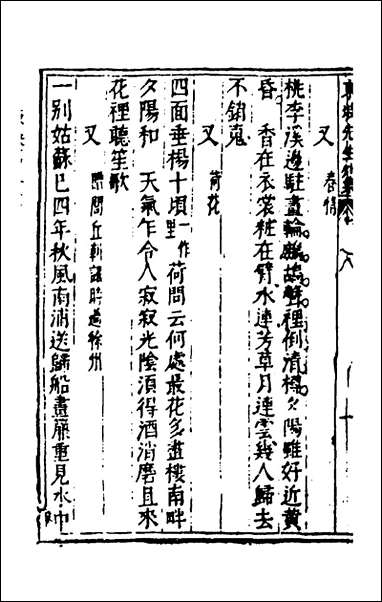 東坡先生外集卷八
又 春情
桃李溪邊駐畫輪鷓鴣聲裡倒清樽夕陽雖好近黃
昏 香在衣裳粧在臂水連芳草月連雲幾人歸去
不銷䰟
又 荷花
四面垂楊十頃一作里荷問云何處最花多畫樓南畔
夕陽和 天氣乍令人寂寂光陰須得酒消磨且來
花裡聽笙歌
又 贈問丘朝議時過徐州
一別姑蘇已四年秋風南浦送歸船畫簾重見水中